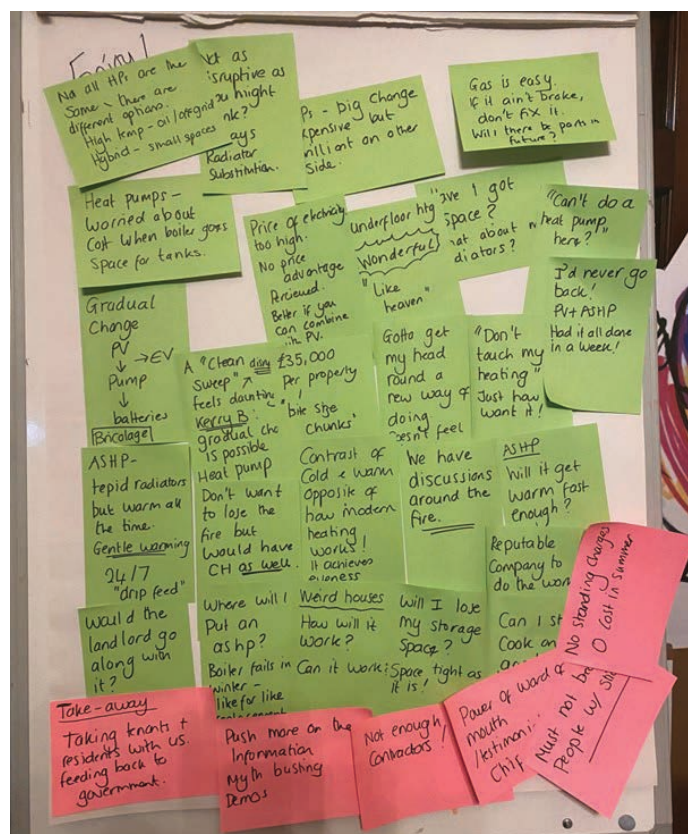 No all HPs are the
Same – there are
different options.
High temp – oil/offgrid
Hybrid – small spaces
as
as
might
Radiator
Substitution.
big change
but
on other
side.
Gas is easy.
If it ain't broke,
don't fix it.
Will there be parts in
future?
Heat pumps –
worried about
Cost when boiler goes
Space for tanks.
Price of electricity
too high.
No price
advantage
Percieved.
Better if you
can combine
PV.
underfloor htg
Wonderful
"Like
heaven"
I got
space?
about
"Can't do a
heat pump
here?"
I'd never go
back!
PV + ASHP
Had it all done
in a week!
Gradual
Change
PV → EV
↓
Pump
↓
batteries
Bricolage
A "Clean
sweep"
feels
Kerry B:
gradual
is possible
Heat pump
£35,000
Per property
!
"bite size
chunks"
Gotto get
my head
round a
new way of
doing
feel
"Don't
touch my
heating"
Just how
want it!
ASHP –
tepid radiators
but warm all
the time.
Gentle warming
24/7
"drip feed"
Don't want
to lose the
fire but
would have
CH as well.
Contrast of
Cold & warm
Opposite of
how modern
heating
works!
It achieves
We have
discussions
around the
fire.
ASHP
Will it get
warm fast
enough?
Reputable
Company to
do the
Can I
Cook on
Would the
landlord go
along with
it?
Where will I
Put an
ashp?
Boiler fails in
winter –
like for like
Weird houses
How will it
work?
Can it work?
Will I lose
my storage
Space?
Space tight as
it is!
No standing charges
O cost in summer
Take-away
Taking tenants +
residents with us.
feeding back to
government.
Push more on the
Information
Myth busting
Demos
Not enough
Contractors!
Power of word of
mouth
Must not
People w/